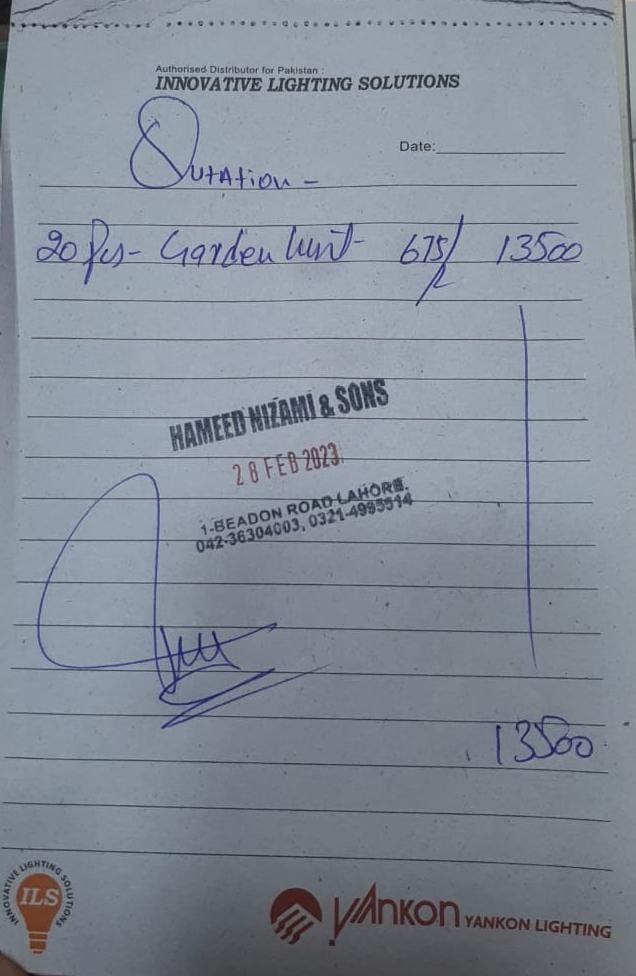 Authorised Distributor for Pakistan :
INNOVATIVE LIGHTING SOLUTIONS
Date:
Qutation -
20 Pcs - Garden 675/ 13500
HAMEED NIZAMI & SONS
28 FEB 2023
1-BEADON ROAD LAHORE.
042-36304003, 0321-4995514
13500
INNOVATIVE LIGHTING SOLUTIONS
ILS
YANKON YANKON LIGHTING